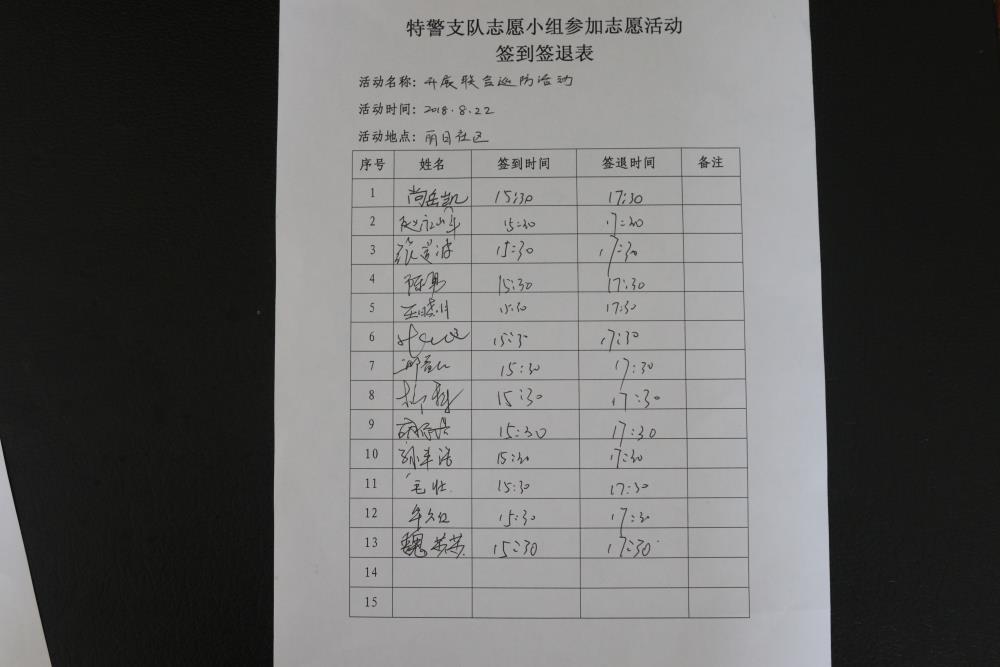 特警支队志愿小组参加志愿活动
签到签退表
活动名称：开展联合巡防活动
活动时间：2018.8.22
活动地点：丽日社区
序号 姓名 签到时间 签退时间 备注
1 尚岳凯 15:30 17:30
2 15:30 17:30
3 15:30 17:30
4 陈勇 15:30 17:30
5 15:30 17:30
6 15:30 17:30
7 15:30 17:30
8 15:30 17:30
9 15:30 17:30
10 15:30 17:30
11 毛壮 15:30 17:30
12 牟久红 15:30 17:30
13 魏苏苏 15:30 17:30
14
15